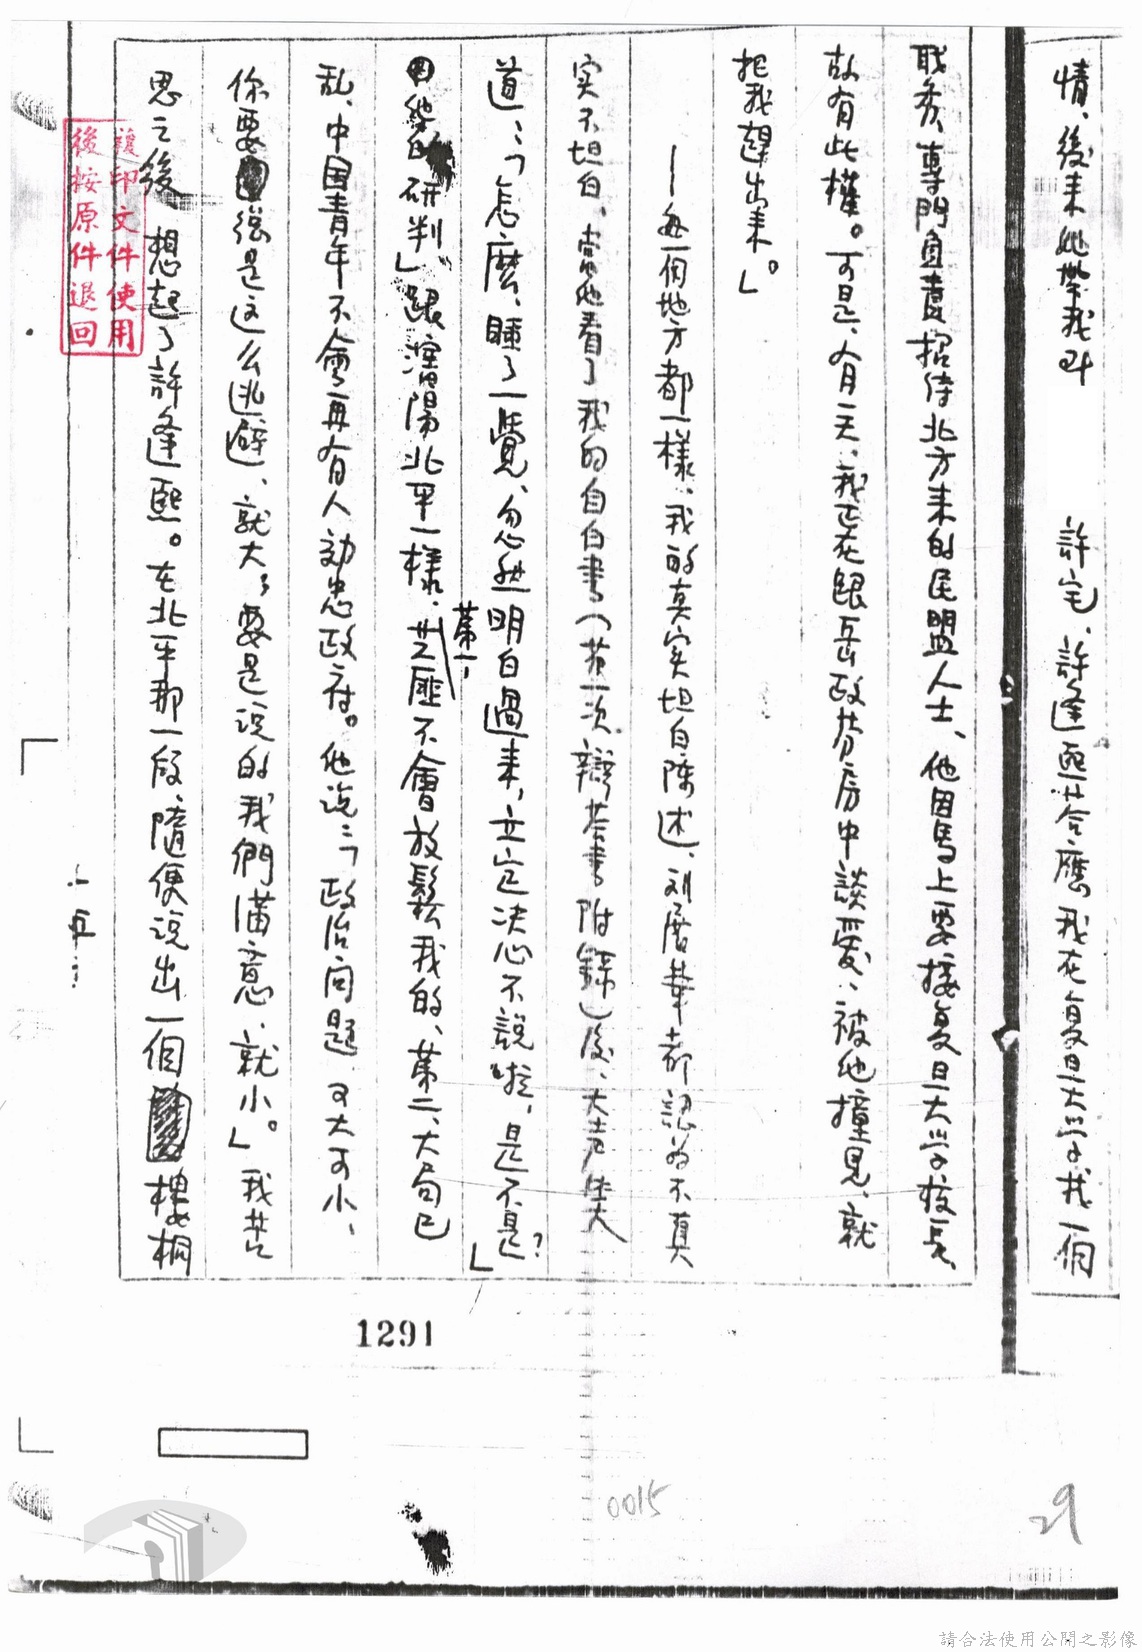 情、後来她帶我到 許宅、許逢熙答應我在复旦大学找一個
職务、專門負責招待北方来的民盟人士、他因馬上要接复旦大学校長、
故有此權。可是、有一天、我正在跟岳政芬房中談愛、被他撞見、就
把我趕出来。」
—每一個地方都一樣、我的真实坦白陳述、刘展華都認为不真
实不坦白、當他看了我的自白書(第一次辯答書附錄)後、大声笑
道:「怎麽、睡了一覺、忽然明白過来,立定决心不說啦,是不是?」
的研判」跟瀋陽北平一樣、第一,共匪不會放鬆我的、第二、大局已
乱、中国青年不會再有人効忠政府。他说:「政治问题、可大可小、
你要強是这么逃避、就大了要是说的我們滿意、就小。」我苦
思之後 想起了許逢熙。在北平那一段、隨便说出一個 樓桐
複印文件使用
後按原件退回
1291
0015
29
請合法使用公開之影像